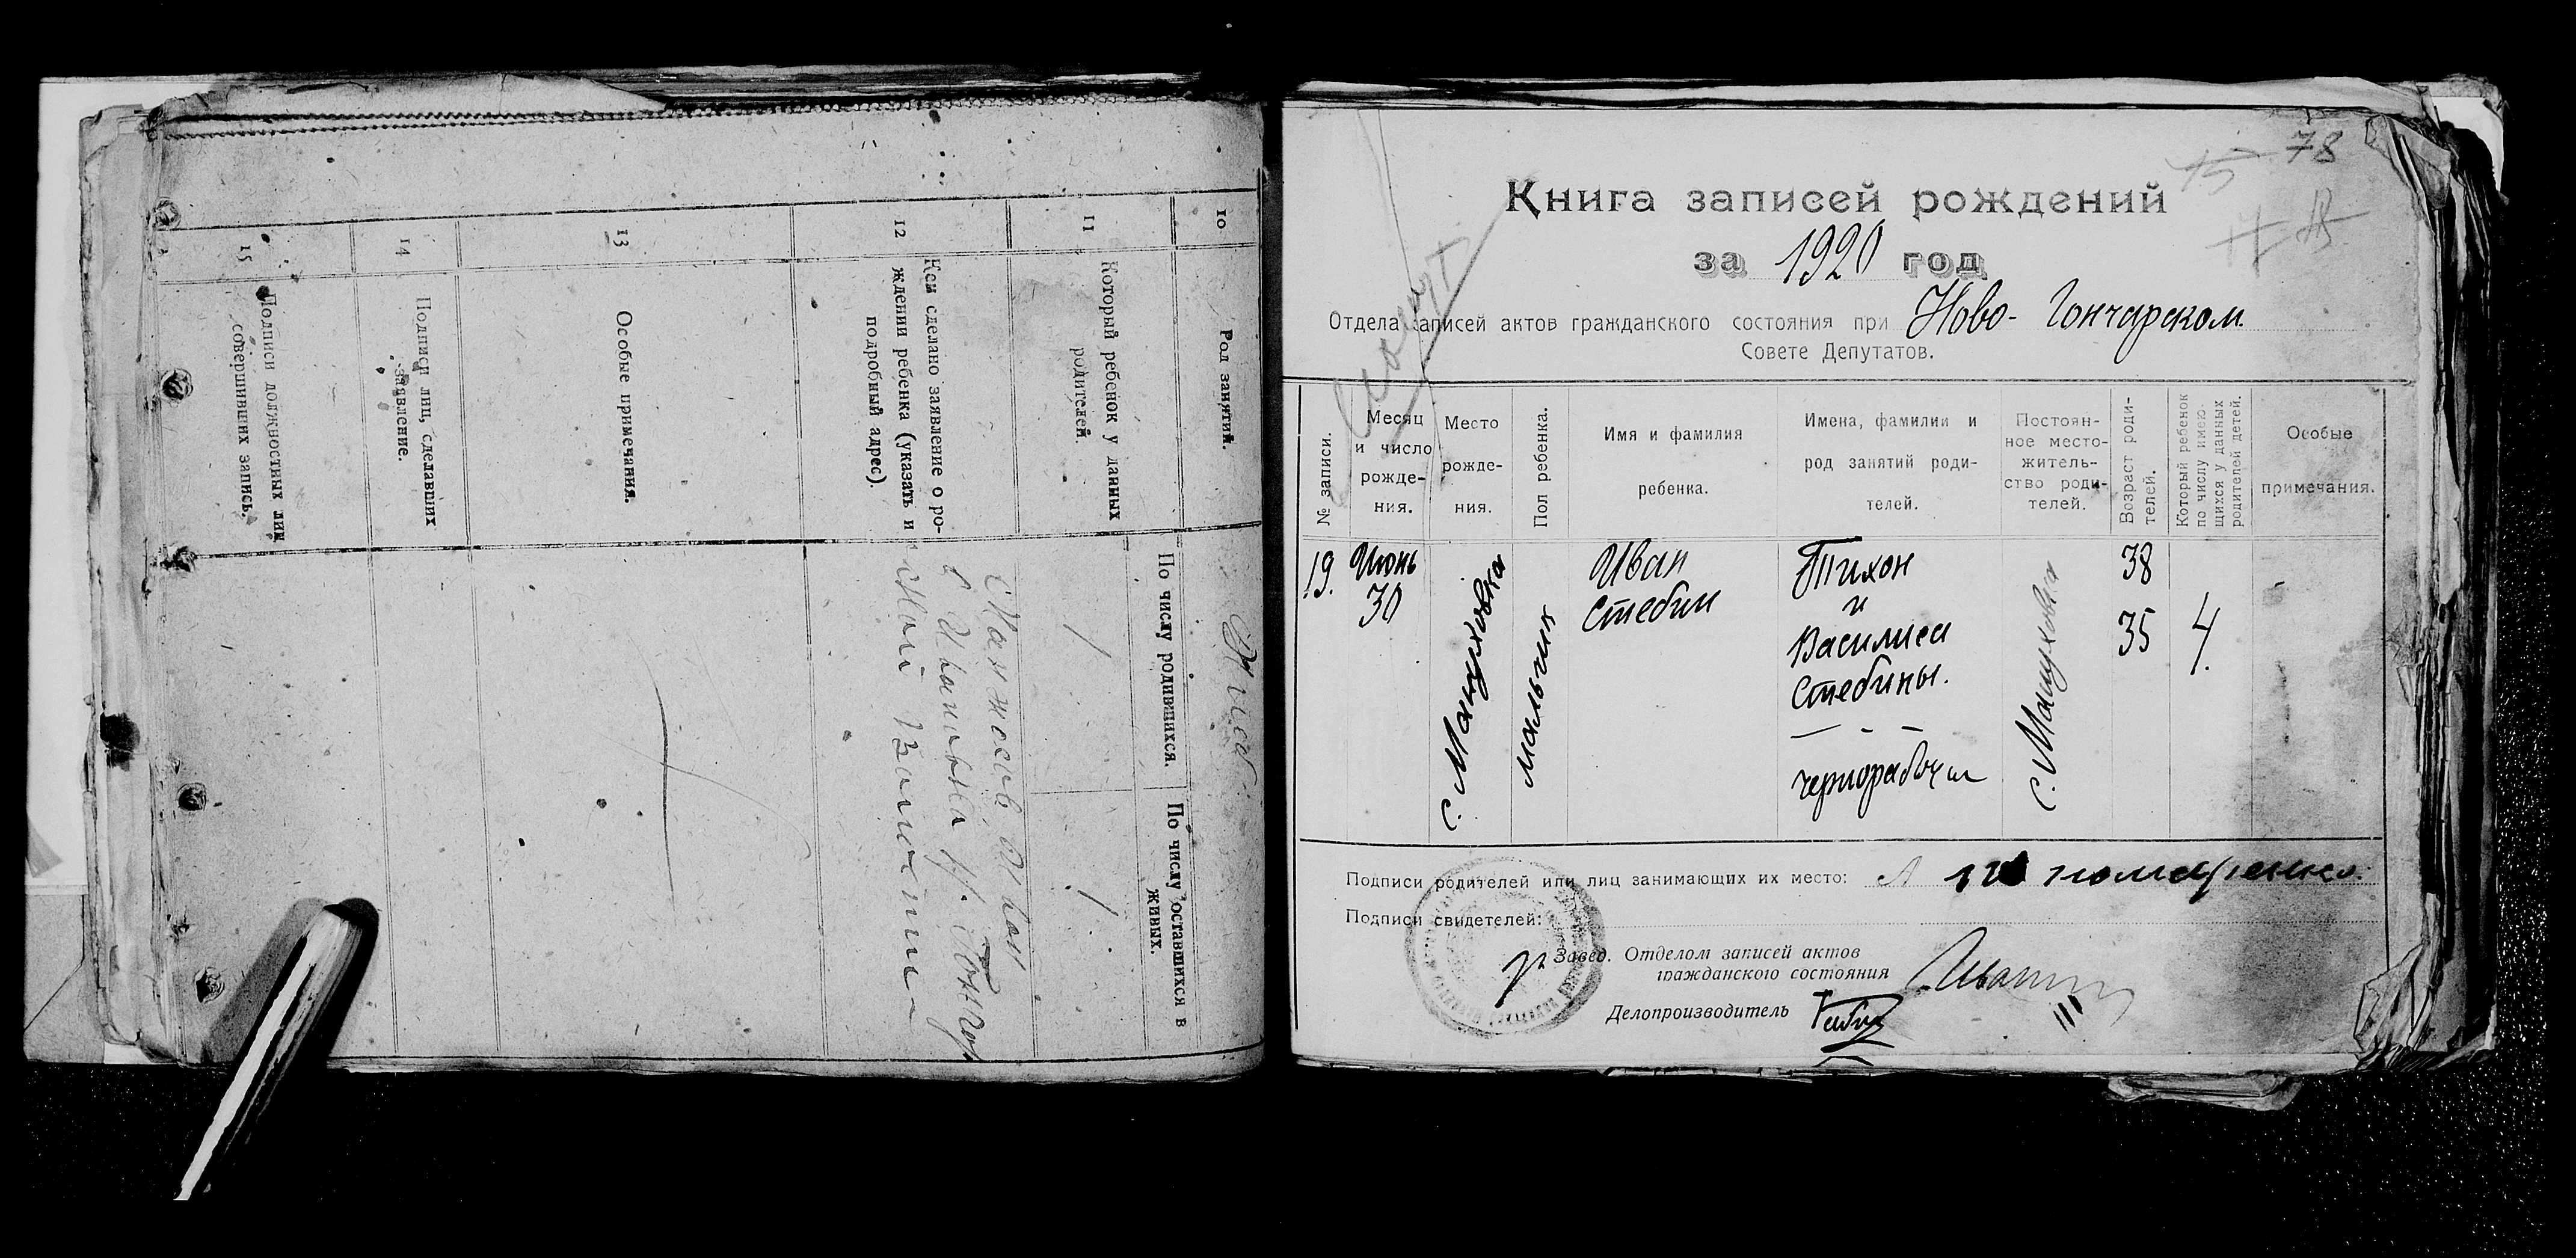 10
Род занятий.
11
Который ребенок у данных
родителей.
По числу родившихся.
По числу оставшихся в
живых.
1
1
12
Кем сделано заявление о ро-
ждении ребенка (указать и
подробный адрес).
13
Особые примечания.
14
Подписи лиц, сделавших
заявление.
15
Подписи должностных лиц
совершивших запись.
78
Книга записей рождений
за 1920 год
Отдела записей актов гражданского состояния при Ново-Гончарском
Совете Депутатов.
№ записи.
Месяц
и число
рожде-
ния.
Место
рожде-
ния.
Пол ребенка.
Имя и фамилия
ребенка.
Имена, фамилии и
род занятий роди-
телей.
Постоян-
ное место-
житель-
ство роди-
телей.
Возраст роди-
телей.
Который ребенок
по числу имею-
щихся у данных
родителей детей.
Особые
примечания.
19.
Июнь
30
с. Манцуховка
мальчик
Иван
Стебин
Тихон
и
Василиса
Стебины.
чернорабочи
с. Манцуховка
38
35
4.
Подписи родителей или лиц занимающих их место:
Подписи свидетелей:
Завед. Отделом записей актов
гражданского состояния
Делопроизводитель